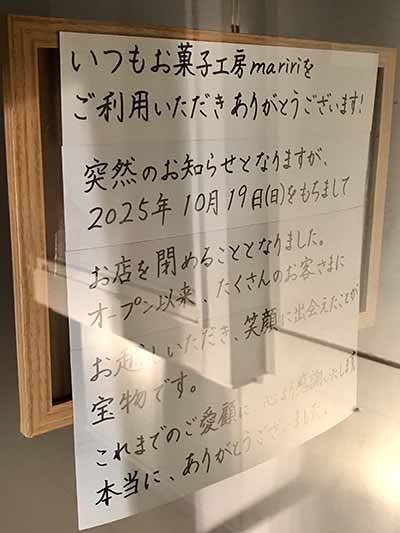 いつもお菓子工房maririを
ご利用いただきありがとうございます!
突然のお知らせとなりますが、
2025年10月19日(日)をもちまして
お店を閉めることとなりました。
オープン以来、たくさんのお客さまに
お越しいただき、笑顔に出会えたことが
宝物です。
これまでのご愛顧に、心より感謝いたします
本当に、ありがとうございました。